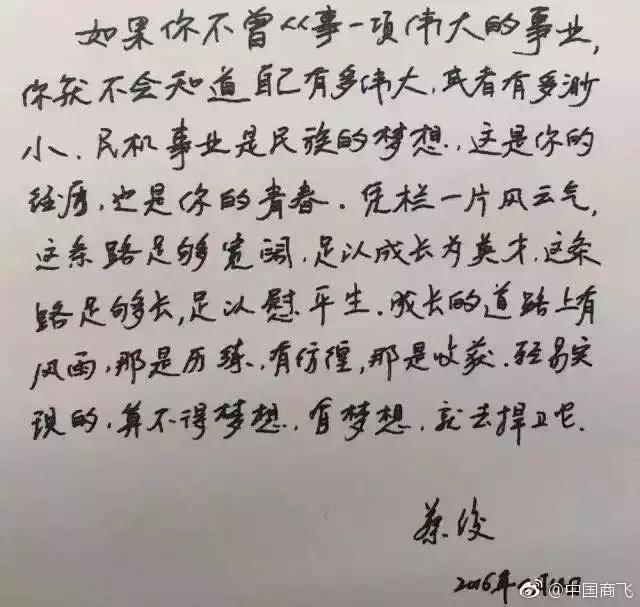 如果你不曾从事一项伟大的事业,
你就不会知道自己有多伟大,或者有多渺
小.民机事业是民族的梦想.这是你的
经历,也是你的青春.凭栏一片风云气,
这条路足够宽阔,足以成长为英才.这条
路足够长,足以慰平生.成长的道路上有
风雨,那是历练.有彷徨,那是收获.轻易实
现的,算不得梦想.有梦想.就去捍卫它.
蔡俊
2016年
@中国商飞